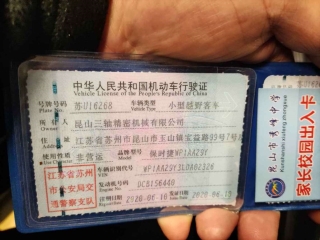 中华人民共和国机动车行驶证
Vehicle License of the People's Republic of China
号牌号码 苏U16268 车辆类型 小型越野客车
Plate No. Vehicle Type
所有人 昆山三轴精密机械有限公司
江苏省苏州市昆山市玉山镇宝益路99号7号
使用性质 非营运 品牌型号 保时捷WP1AA2SY
车辆识别代号
VIN
发动机号码 DCB156440
注册日期 2020-06-10 发证日期 2020-06-19
江苏省苏州
市公安局交
通警察支队
昆山市秀峰中学
Kunshanshi xiufeng zhongxue
家长校园出入卡